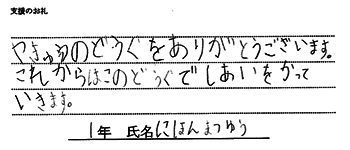 支援のお礼
やきゅうのどうぐをありがとうございます。
これからはこのどうぐでしあいをかって
いきます。
1年 氏名にほんまつゆう